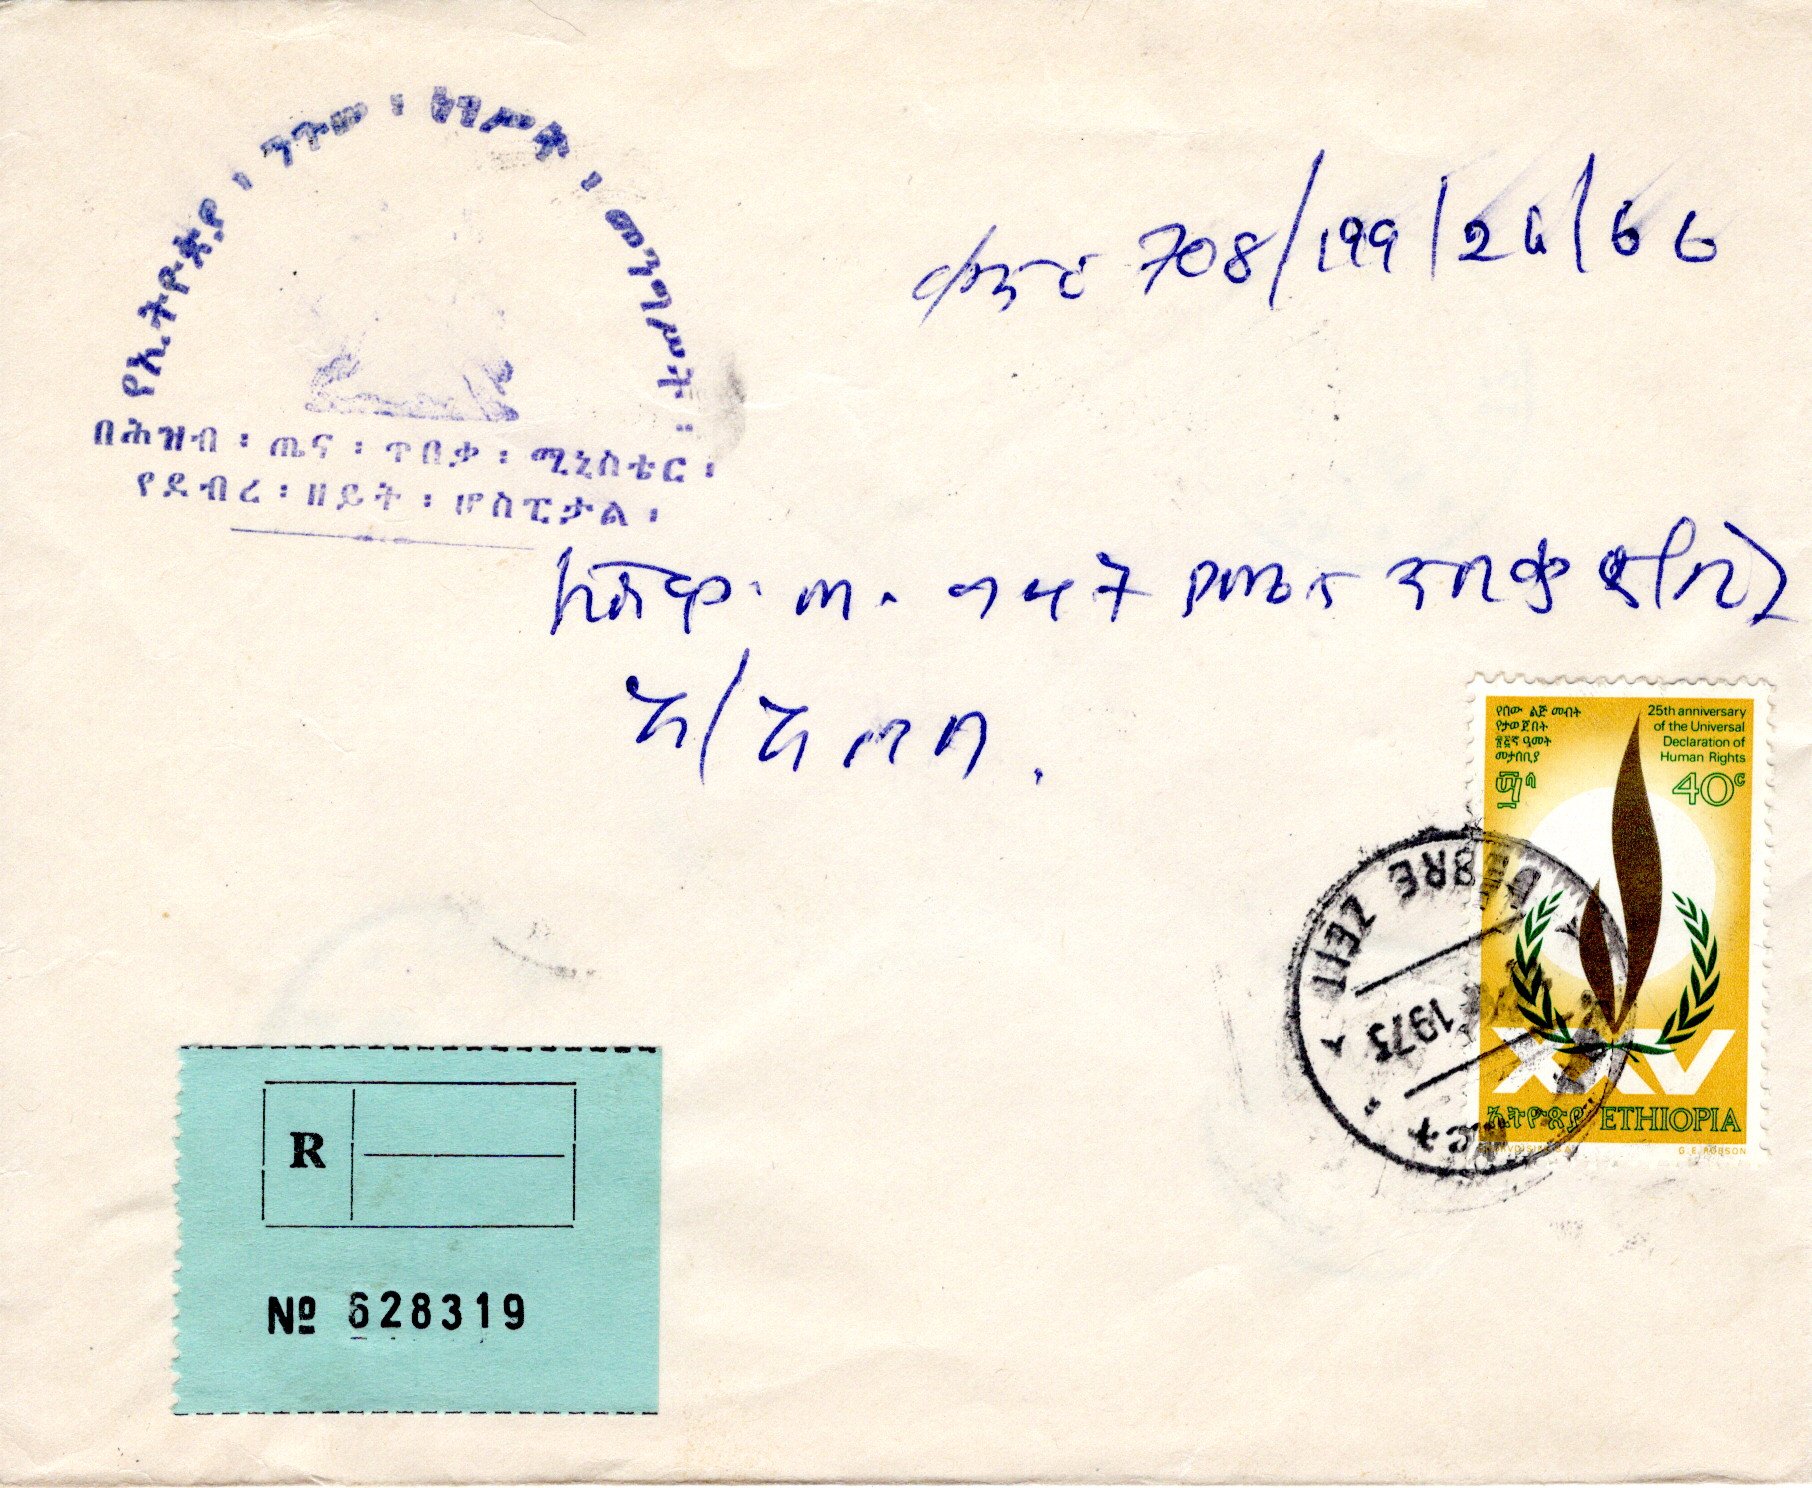 የኢትዮጵያ ፡ ንጉሠ ፡ ነገሥት ፡ መንግሥት ።
በሕዝብ ፡ ጤና ፡ ጥበቃ ፡ ሚኒስቴር ፡
የዶብረ ፡ ዘይት ፡ ሆስፒታል ፡
ቁጥር 708/199/24/66
ለ
የጤና ጥበቃ
አ/አበባ
የሰው ልጅ መብት
የታወጀበት
፳፭ኛ ዓመት
መታሰቢያ
25th anniversary
of the Universal
Declaration of
Human Rights
፵ ሳ
40c
XXV
ኢትዮጵያ ETHIOPIA
G. E. ROBSON
DEBRE ZEIT
1973
R
№ 628319